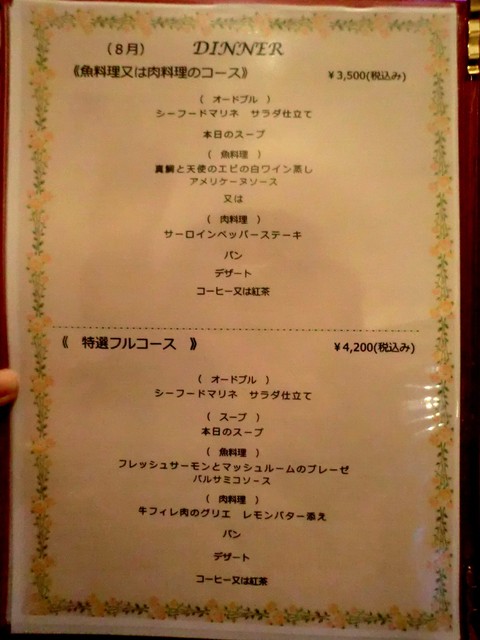 (8月) DINNER
《魚料理又は肉料理のコース》 ¥3,500(税込み)
( オードブル )
シーフードマリネ サラダ仕立て
本日のスープ
( 魚料理 )
真鯛と天使のエビの白ワイン蒸し
アメリケーヌソース
又は
( 肉料理 )
サーロインペッパーステーキ
パン
デザート
コーヒー又は紅茶
《 特選フルコース 》 ¥4,200(税込み)
( オードブル )
シーフードマリネ サラダ仕立て
( スープ )
本日のスープ
( 魚料理 )
フレッシュサーモンとマッシュルームのブレーゼ
バルサミコソース
( 肉料理 )
牛フィレ肉のグリエ レモンバター添え
パン
デザート
コーヒー又は紅茶